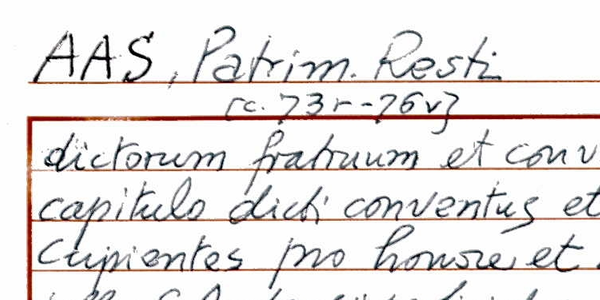 AAS, Patrim. Resti
[c. 73r-76v]
dictorum fratruum et conv
capitulo dicti conventus et
Cupientes pro honore et